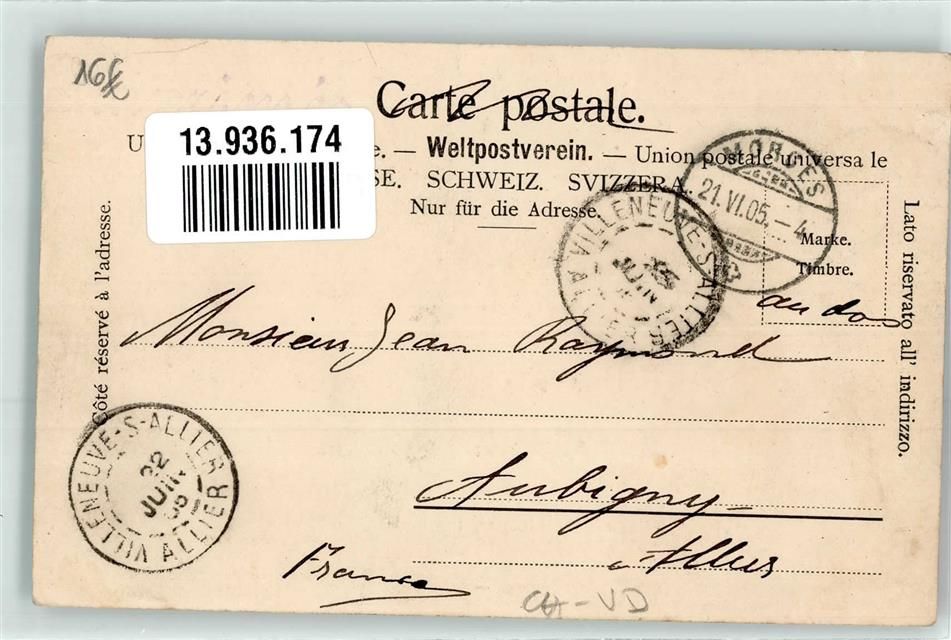 16
Carte postale.
13.936.174
U
e. — Weltpostverein. — Union postale universale
SE. SCHWEIZ. SVIZZERA.
Nur für die Adresse.
MORGES
21.VI.05. — 4
Marke.
Timbre.
au dos
VILLENEUVE-S-ALLIER
JUIN
Côté réservé à l'adresse.
Lato riservato all' indirizzo.
Monsieur Jean Raymond
VILLENEUVE-S-ALLIER
22
JUIN
05
ALLIER
Aubigny
Allier
France
CH-VD